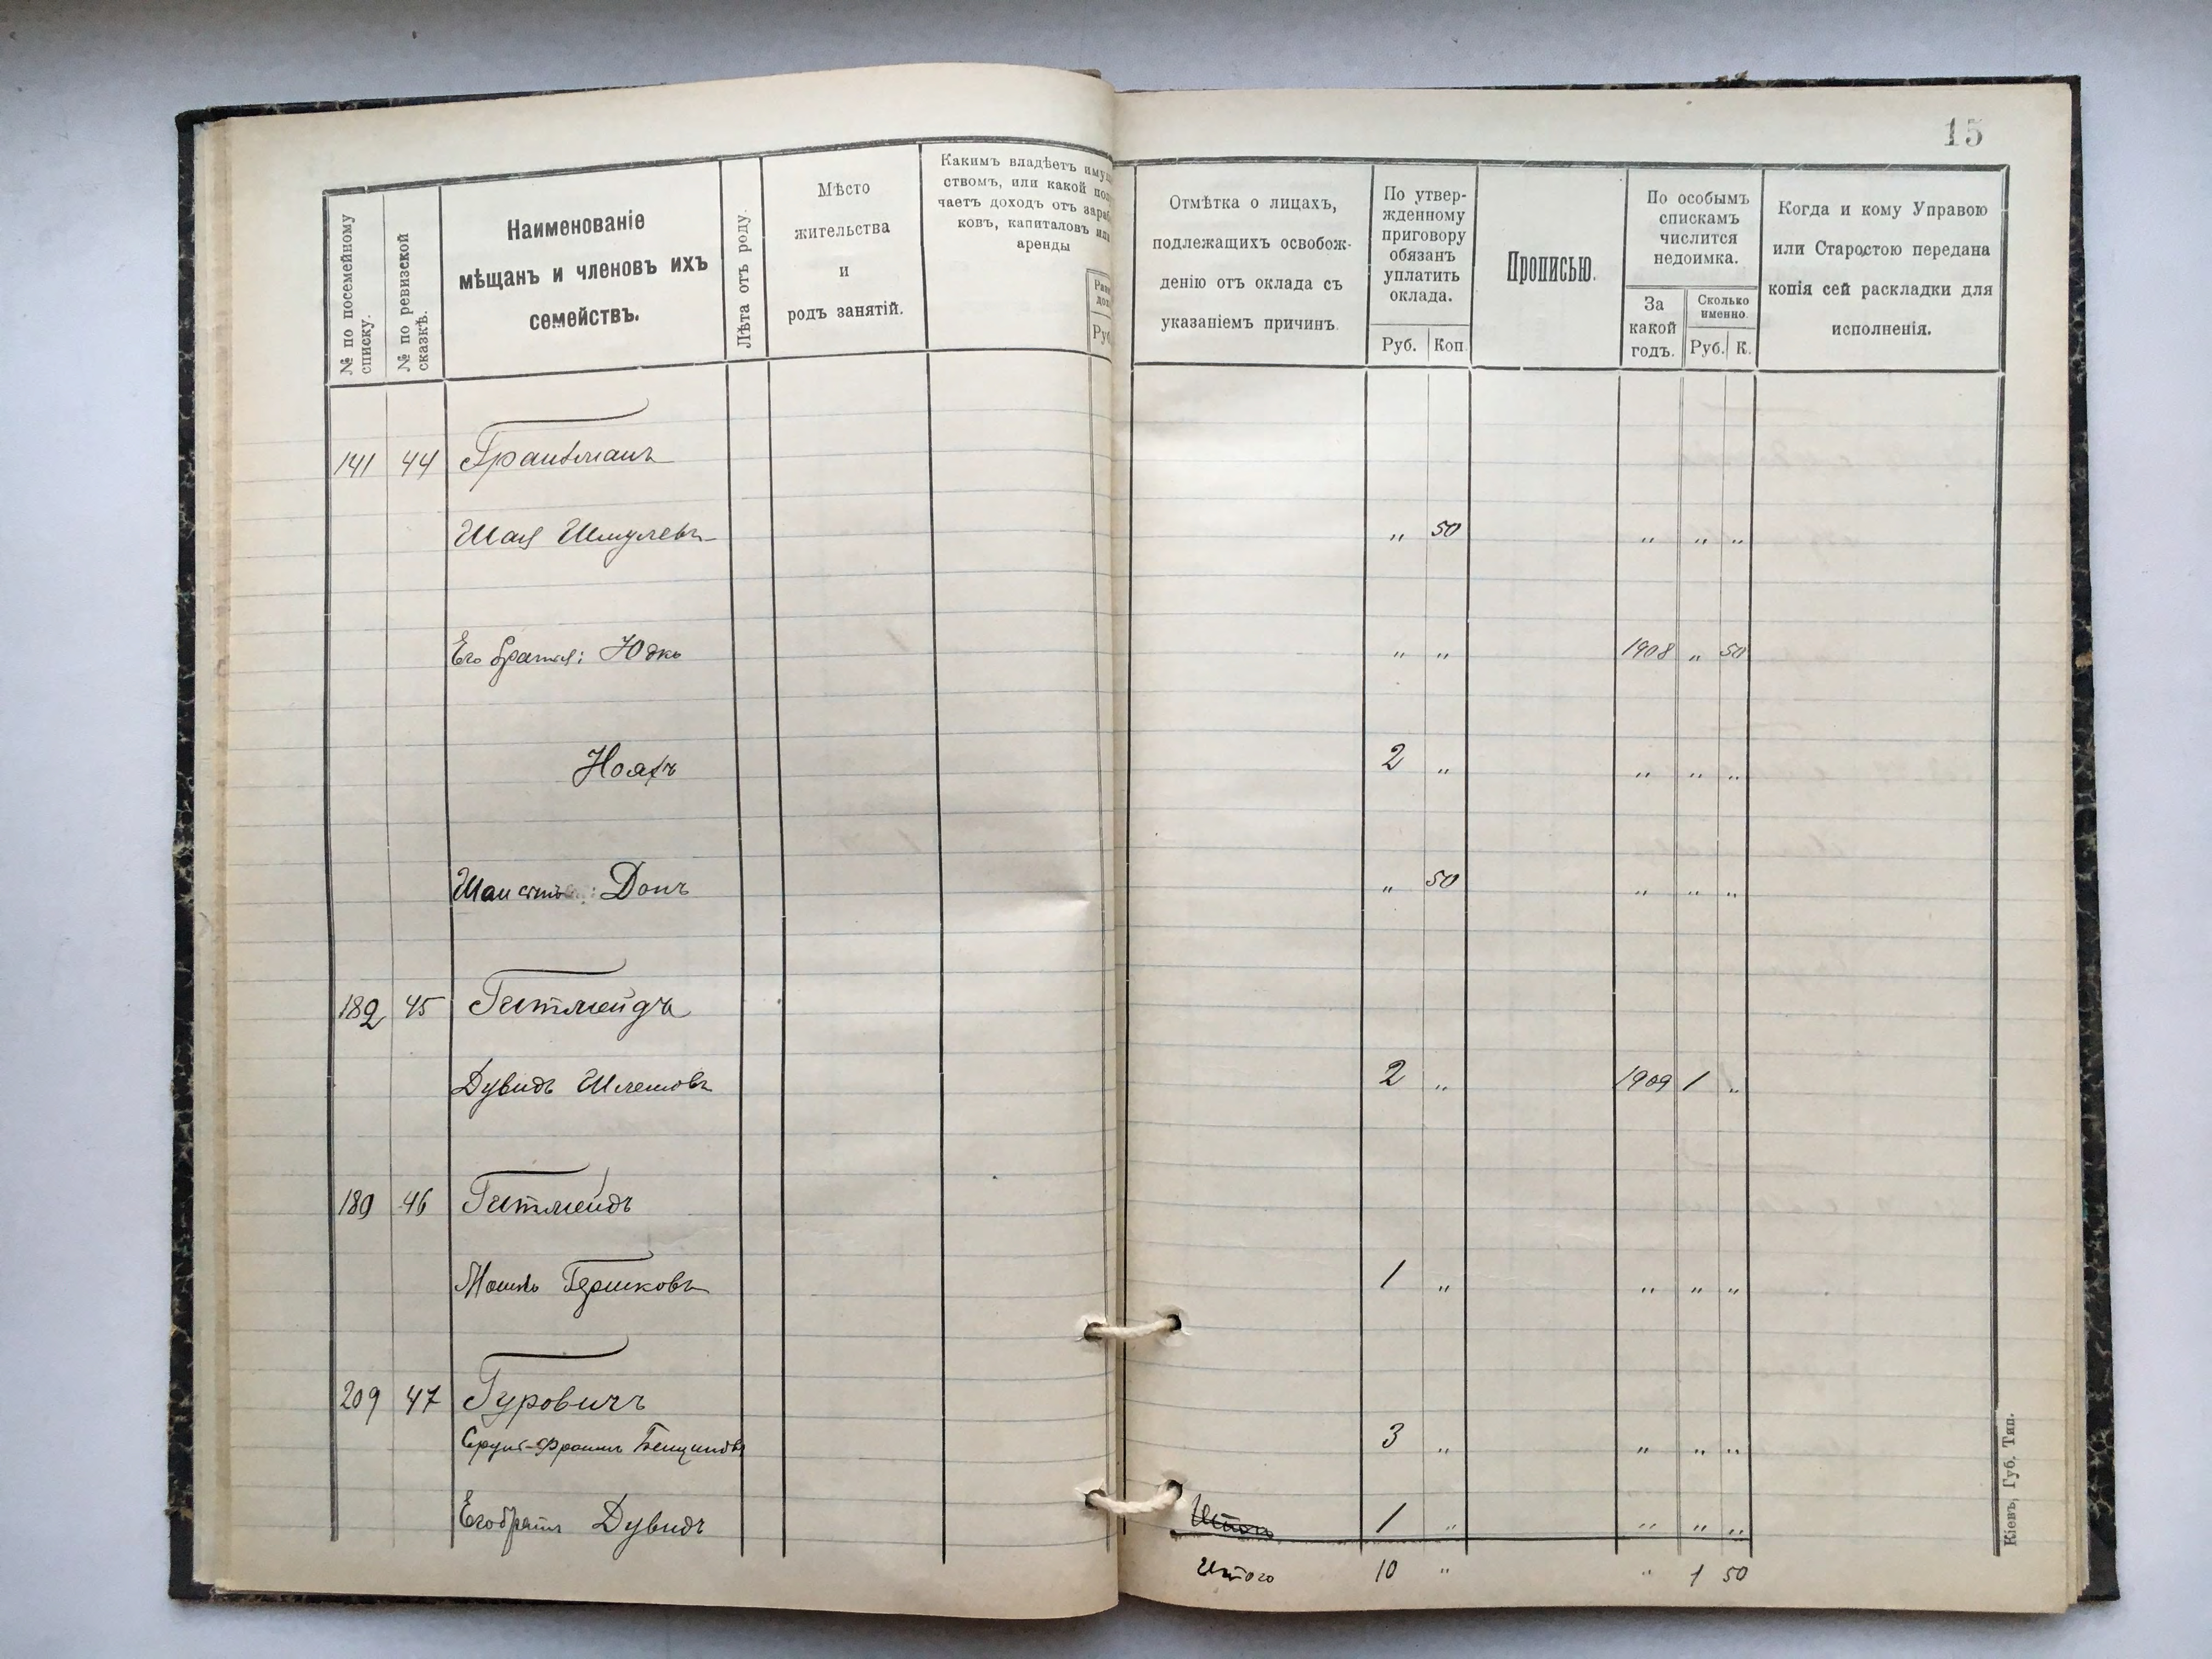 15
№ по посемейному списку.
№ по ревизской сказкѣ.
Наименованіе
мѣщанъ и членовъ ихъ
семействъ.
Лѣта отъ роду.
Мѣсто
жительства
и
родъ занятій.
Какимъ владѣетъ имущ
ствомъ, или какой пол
чаетъ доходъ отъ зараб
ковъ, капиталовъ или
аренды
Руб
Отмѣтка о лицахъ,
подлежащихъ освобож-
денію отъ оклада съ
указаніемъ причинъ.
По утвер-
жденному
приговору
обязанъ
уплатить
оклада.
Руб. Коп.
Прописью.
По особымъ
спискамъ
числится
недоимка.
За
какой
годъ.
Сколько
именно.
Руб. К.
Когда и кому Управою
или Старостою передана
копія сей раскладки для
исполненія.
141 44
Шая Шмулевъ „ 50 „ „ „
Его братья: Юдко „ „ 1908 „ 50
Ноахъ 2 „ „ „ „
Донъ „ 50 „ „ „
182 45 Гитмейдъ
Дувидъ Шлемовъ 2 „ 1909 1 „
189 46 Гитмейдъ
Мошко Гершковъ 1 „ „ „ „
209 47 Гуровичъ
3 „ „ „ „
Его братъ Дувидъ Итого 1 „ „ „ „
Итого 10 „ „ 1 50
Кіевъ, Губ. Тип.